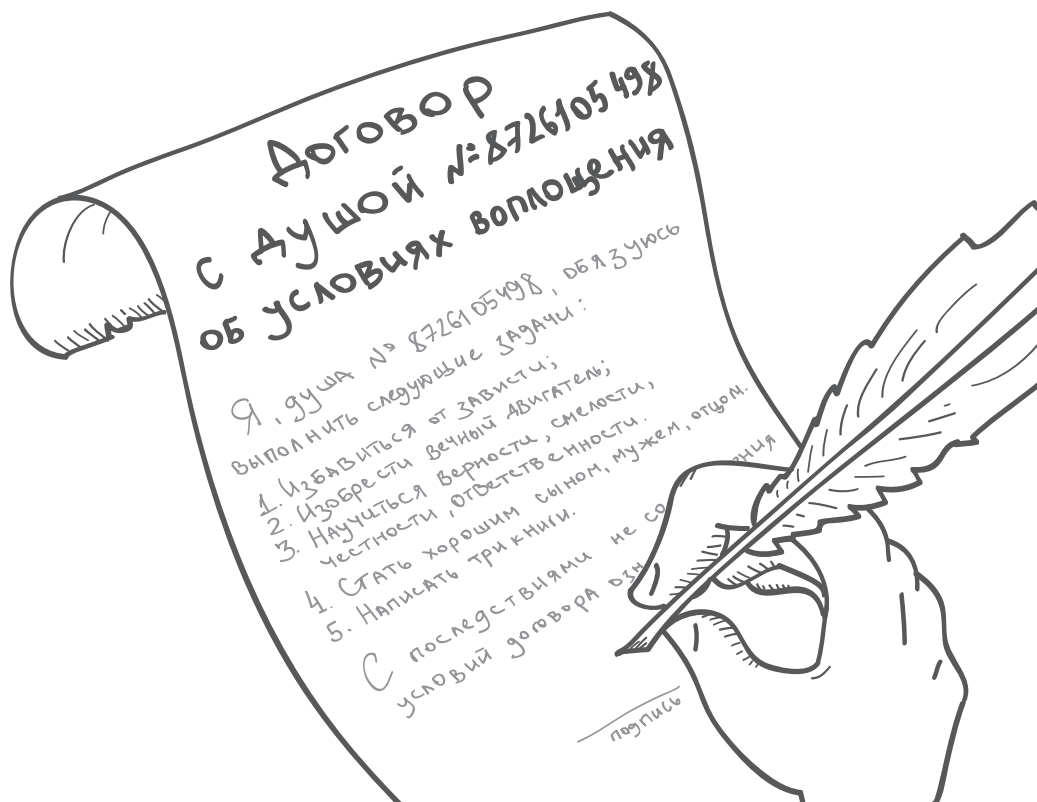 Договор
с душой №8726105498
об условиях воплощения
Я, душа № 8726105498, обязуюсь
выполнить следующие задачи:
1. Избавиться от зависти;
2. Изобрести вечный двигатель;
3. Научиться верности, смелости,
честности, ответственности.
4. Стать хорошим сыном, мужем, отцом.
5. Написать три книги.
С последствиями не
условий договора
подпись